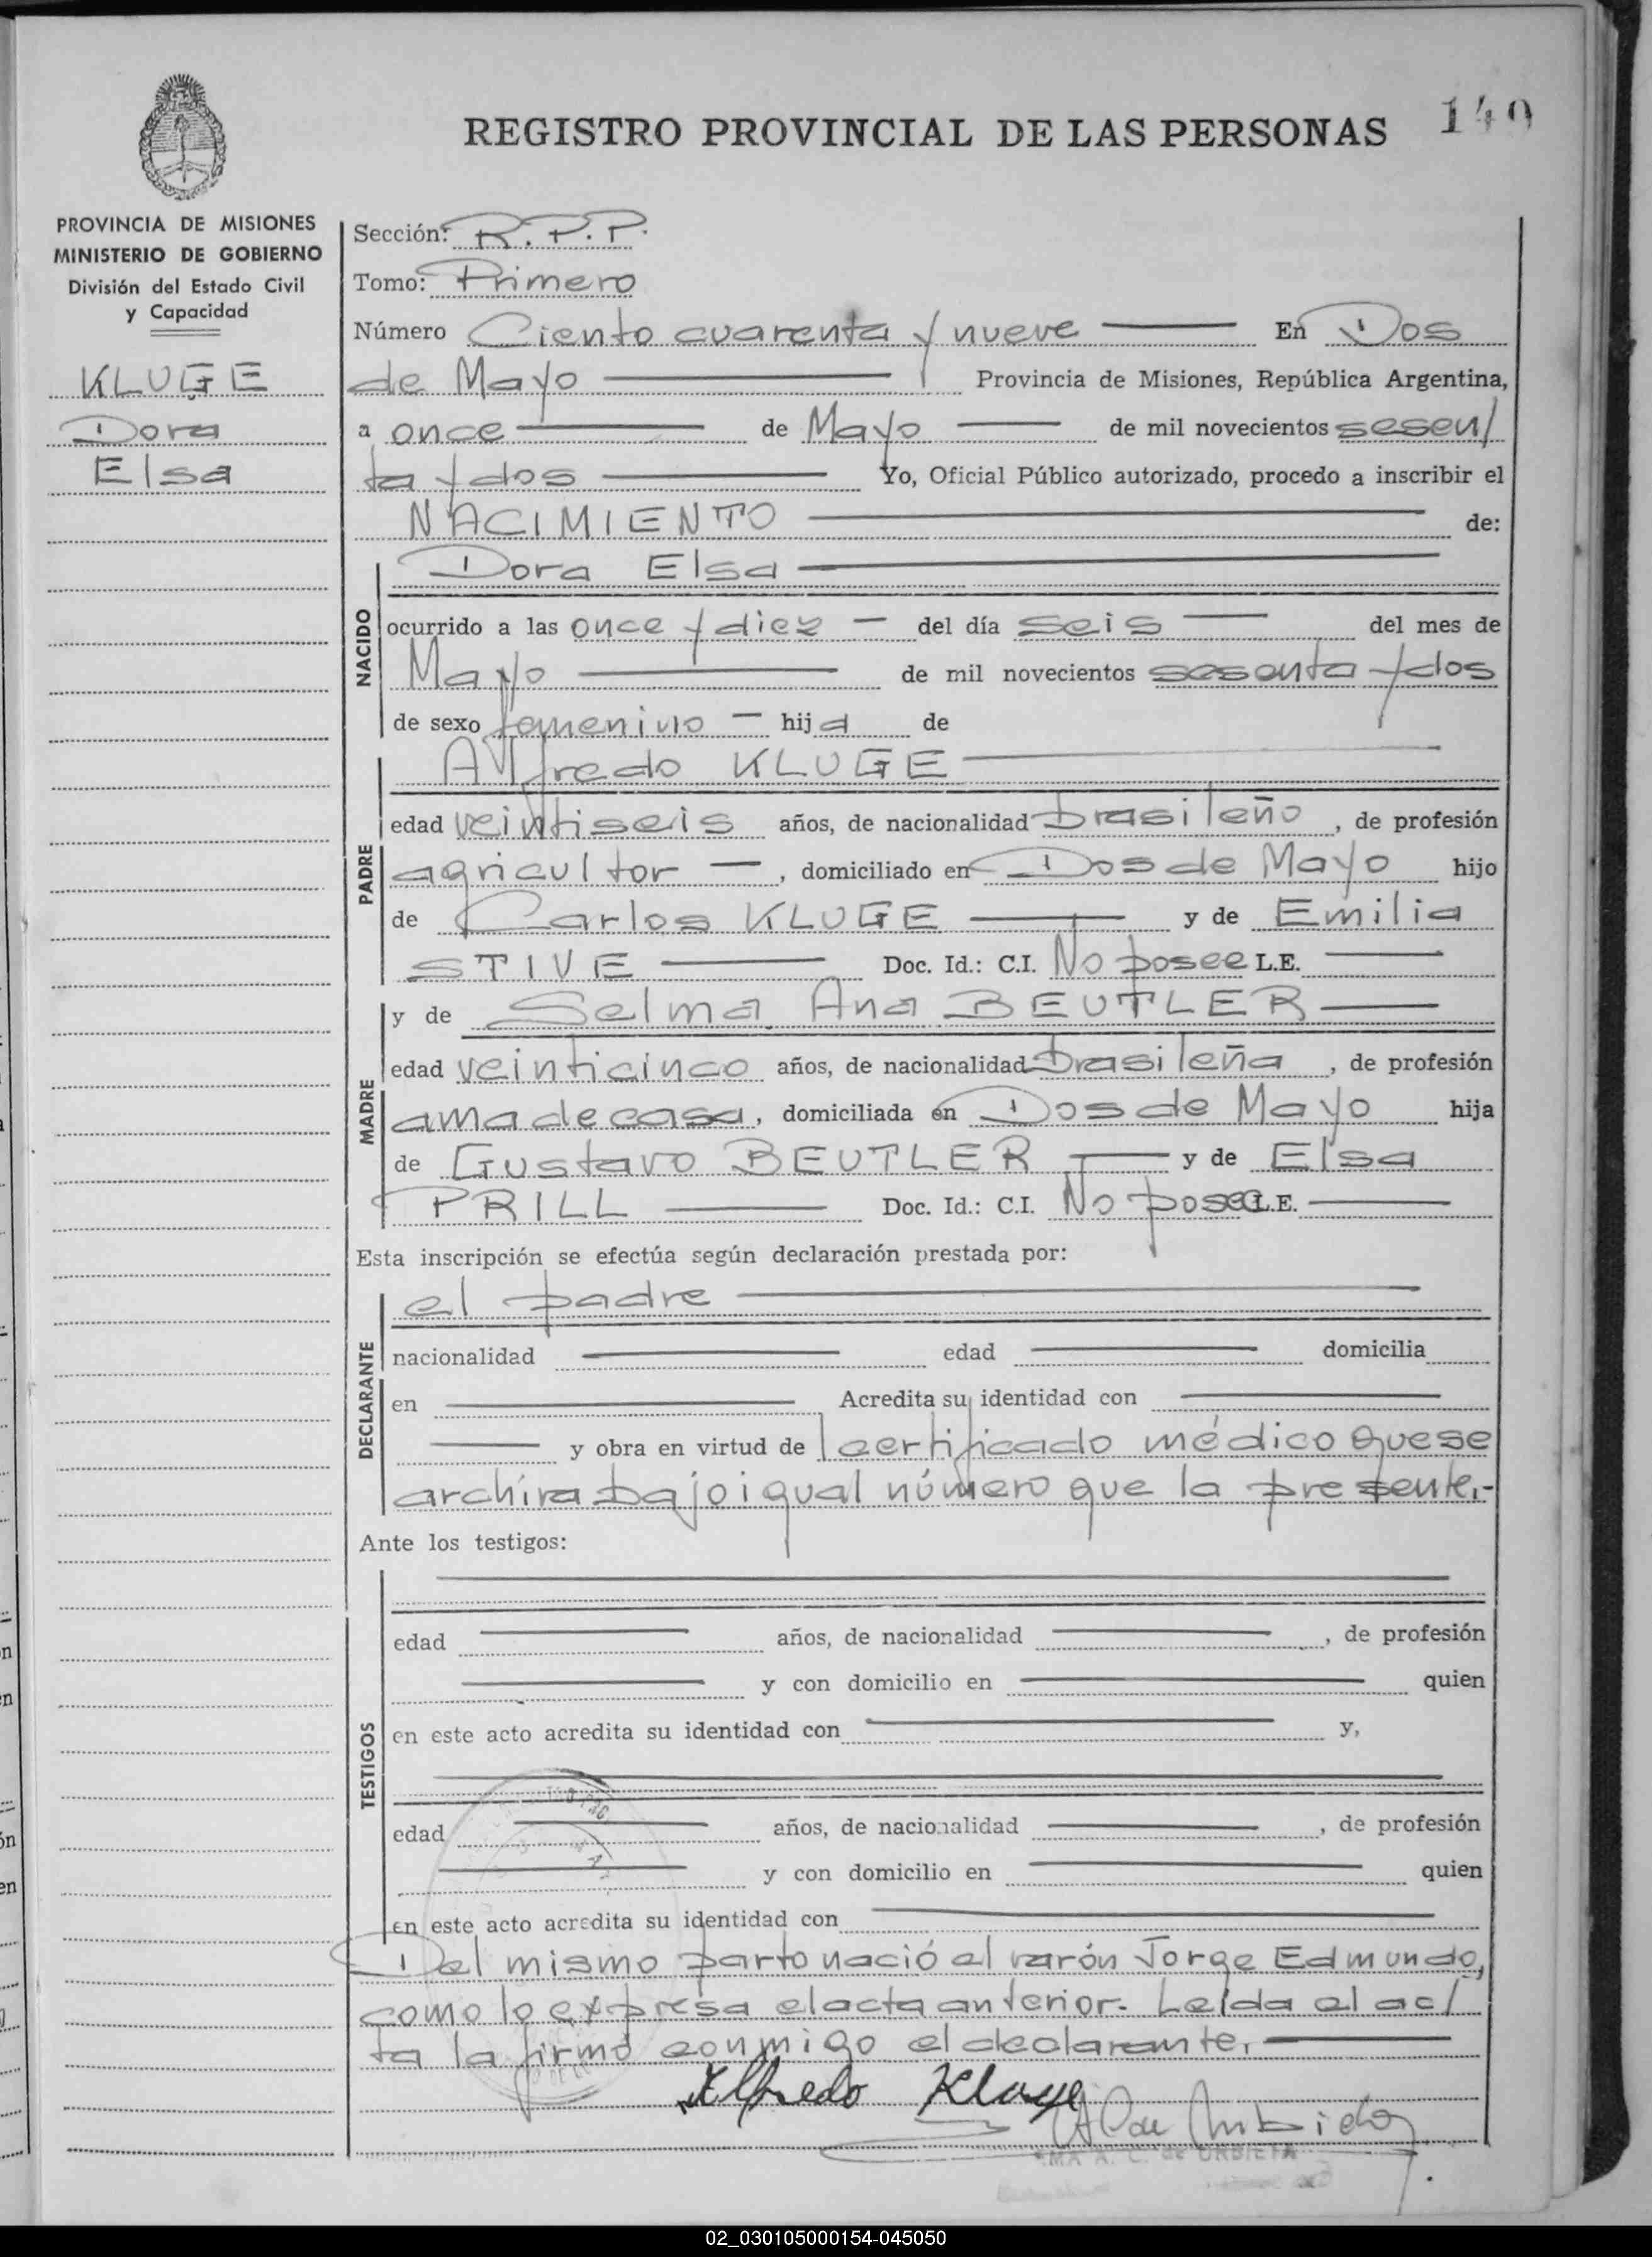 REGISTRO PROVINCIAL DE LAS PERSONAS 149
PROVINCIA DE MISIONES
MINISTERIO DE GOBIERNO
División del Estado Civil
y Capacidad
KLUGE
Dora
Elsa
Sección: R.P.P.
Tomo: Primero
Número Ciento cuarenta y nueve En Dos
de Mayo Provincia de Misiones, República Argentina,
a once de Mayo de mil novecientos sesen/
ta y dos Yo, Oficial Público autorizado, procedo a inscribir el
NACIMIENTO de:
NACIDO
Dora Elsa
ocurrido a las once y diez del día seis del mes de
Mayo de mil novecientos sesenta y dos
de sexo femenino hija de
PADRE
Alfredo KLUGE
edad veintiseis años, de nacionalidad brasileño, de profesión
agricultor, domiciliado en Dos de Mayo hijo
de Carlos KLUGE y de Emilia
STIVE Doc. Id.: C.I. No posee L.E.
MADRE
y de Selma Ana BEUTLER
edad veinticinco años, de nacionalidad brasileña, de profesión
ama de casa, domiciliada en Dos de Mayo hija
de Gustavo BEUTLER y de Elsa
PRILL Doc. Id.: C.I. No posee L.E.
Esta inscripción se efectúa según declaración prestada por:
DECLARANTE
el padre
nacionalidad edad domicilia
en Acredita su identidad con
y obra en virtud de certificado médico que se
archiva bajo igual número que la presente.-
Ante los testigos:
TESTIGOS
edad años, de nacionalidad , de profesión
y con domicilio en quien
en este acto acredita su identidad con y,
edad años, de nacionalidad , de profesión
y con domicilio en quien
en este acto acredita su identidad con
Del mismo parto nació el varón Jorge Edmundo,
como lo expresa el acta anterior.- Leída el ac/
ta la firmó conmigo el declarante.
Alfredo Kluge
A. C. de URBIETA
02_030105000154-045050